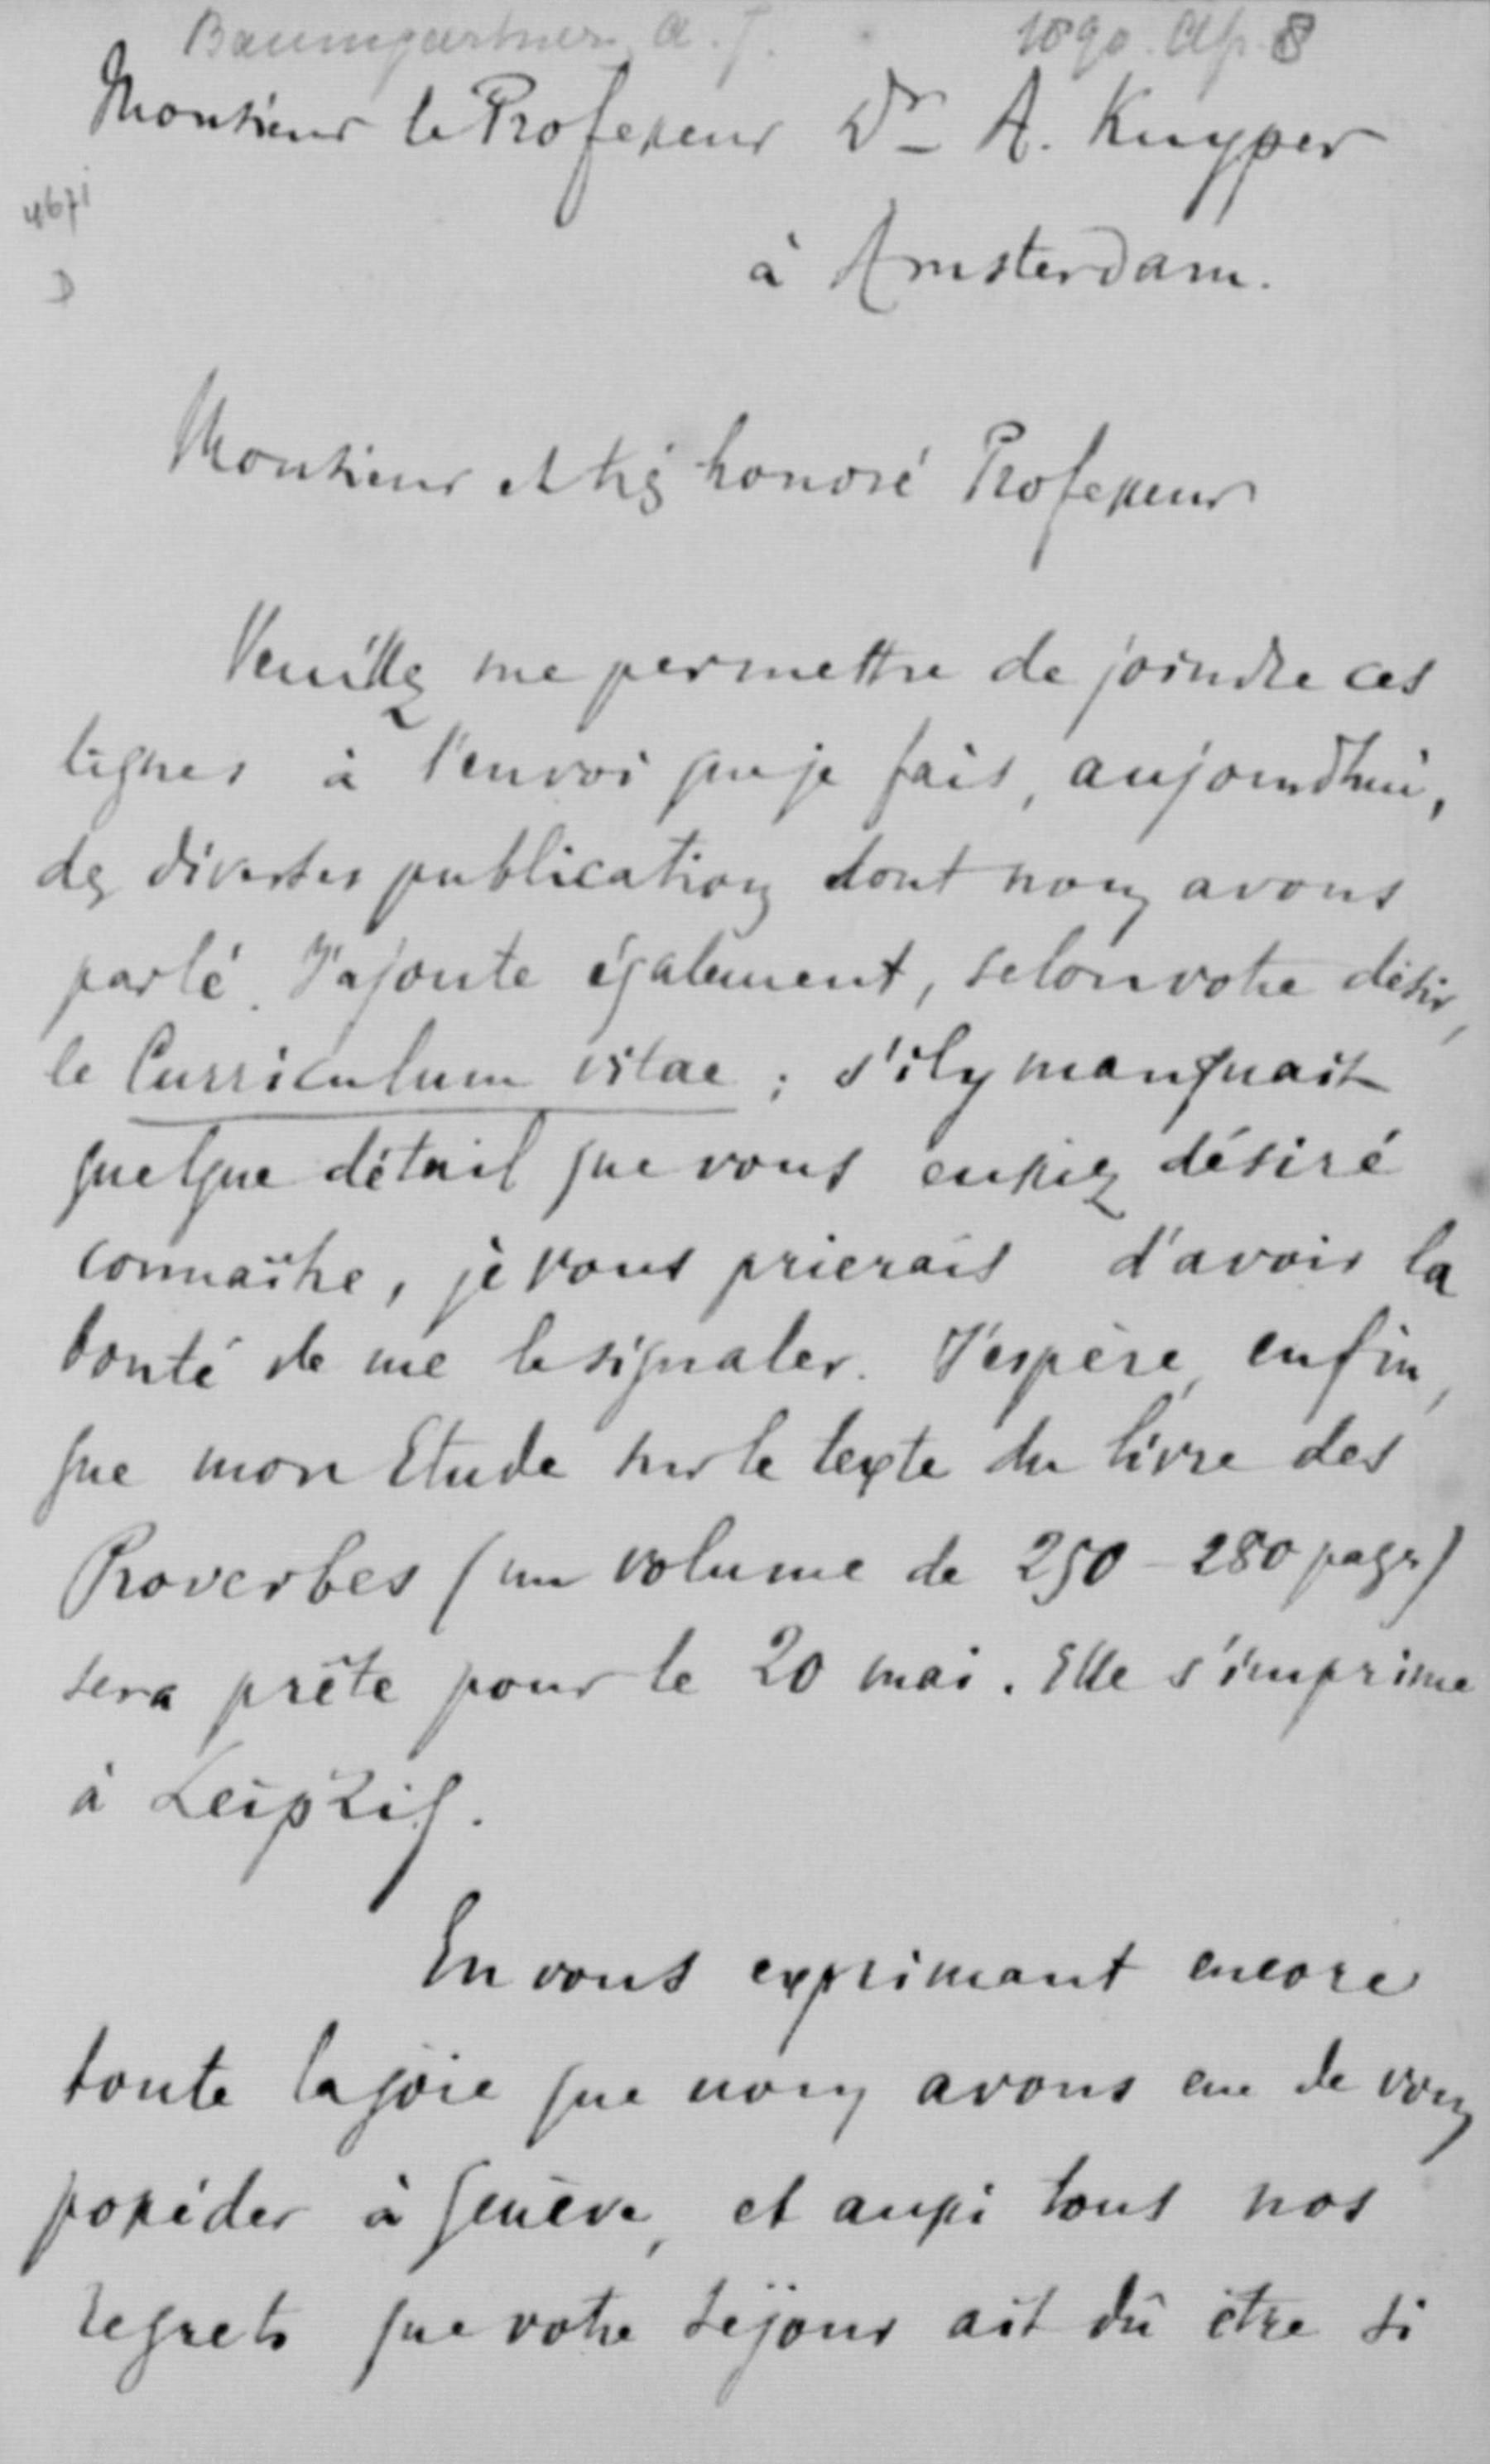 Baumgartner, A. J. 1890. Apr. 8
Monsieur le Professeur Dr A. Kuyper
4671
à Amsterdam.
D
Monsieur et très honoré Professeur
Veuillez me permettre de joindre ces
lignes à l'envoi que je fais, aujourd'hui,
des diverses publications dont nous avons
parlé. J'ajoute également, selon votre désir,
le Curriculum vitae ; s'il y manquait
quelque détail que vous eussiez désiré
connaître, je vous prierais d'avoir la
bonté de me le signaler. J'espère, enfin,
que mon Etude sur le texte du livre des
Proverbes (un volume de 250 - 280 pages)
sera prête pour le 20 mai. Elle s'imprime
à Leipzig.
En vous exprimant encore
toute la joie que nous avons eue de vous
posséder à Genève, et aussi tous nos
regrets que votre séjour ait dû être si